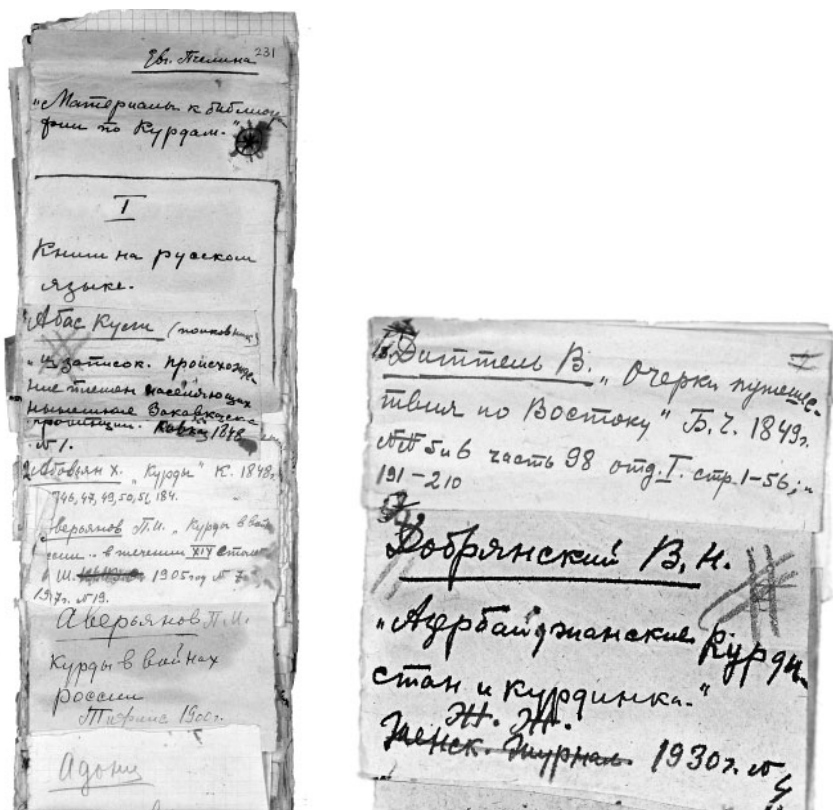 Евг. Пчелина 231
„Материалы к библиогра-
фии по Курдам."
I
Книги на русском
языке.
Абас Кули (полковник)
„Из записок. Происхожде-
ние племен населяющих
нынешние Закавказские
провинции. Кавказ 1848
№ 1.
2. Абовьян Х. „Курды" К. 1848г.
46, 47, 49, 50, 51, 184.
Аверьянов П.И. „Курды в вой
ссии в течении XIX стол
Ш. 1905 год № 7
1917г. №19.
Аверьянов П.И.
Курды в войнах
России
Тифлис 1900г.
Адонц
18. Диттель В. „Очерки путешес-
твия по Востоку" Б.Ч. 1849г.
№№ 5 и 6 часть 98 отд. I. стр. 1-56;
191-210
Добрянский В.Н.
„Азербайджанские Курды-
стан и курдинка."
Ж. Ж.
Женск. Журнал. 1930г. №
4